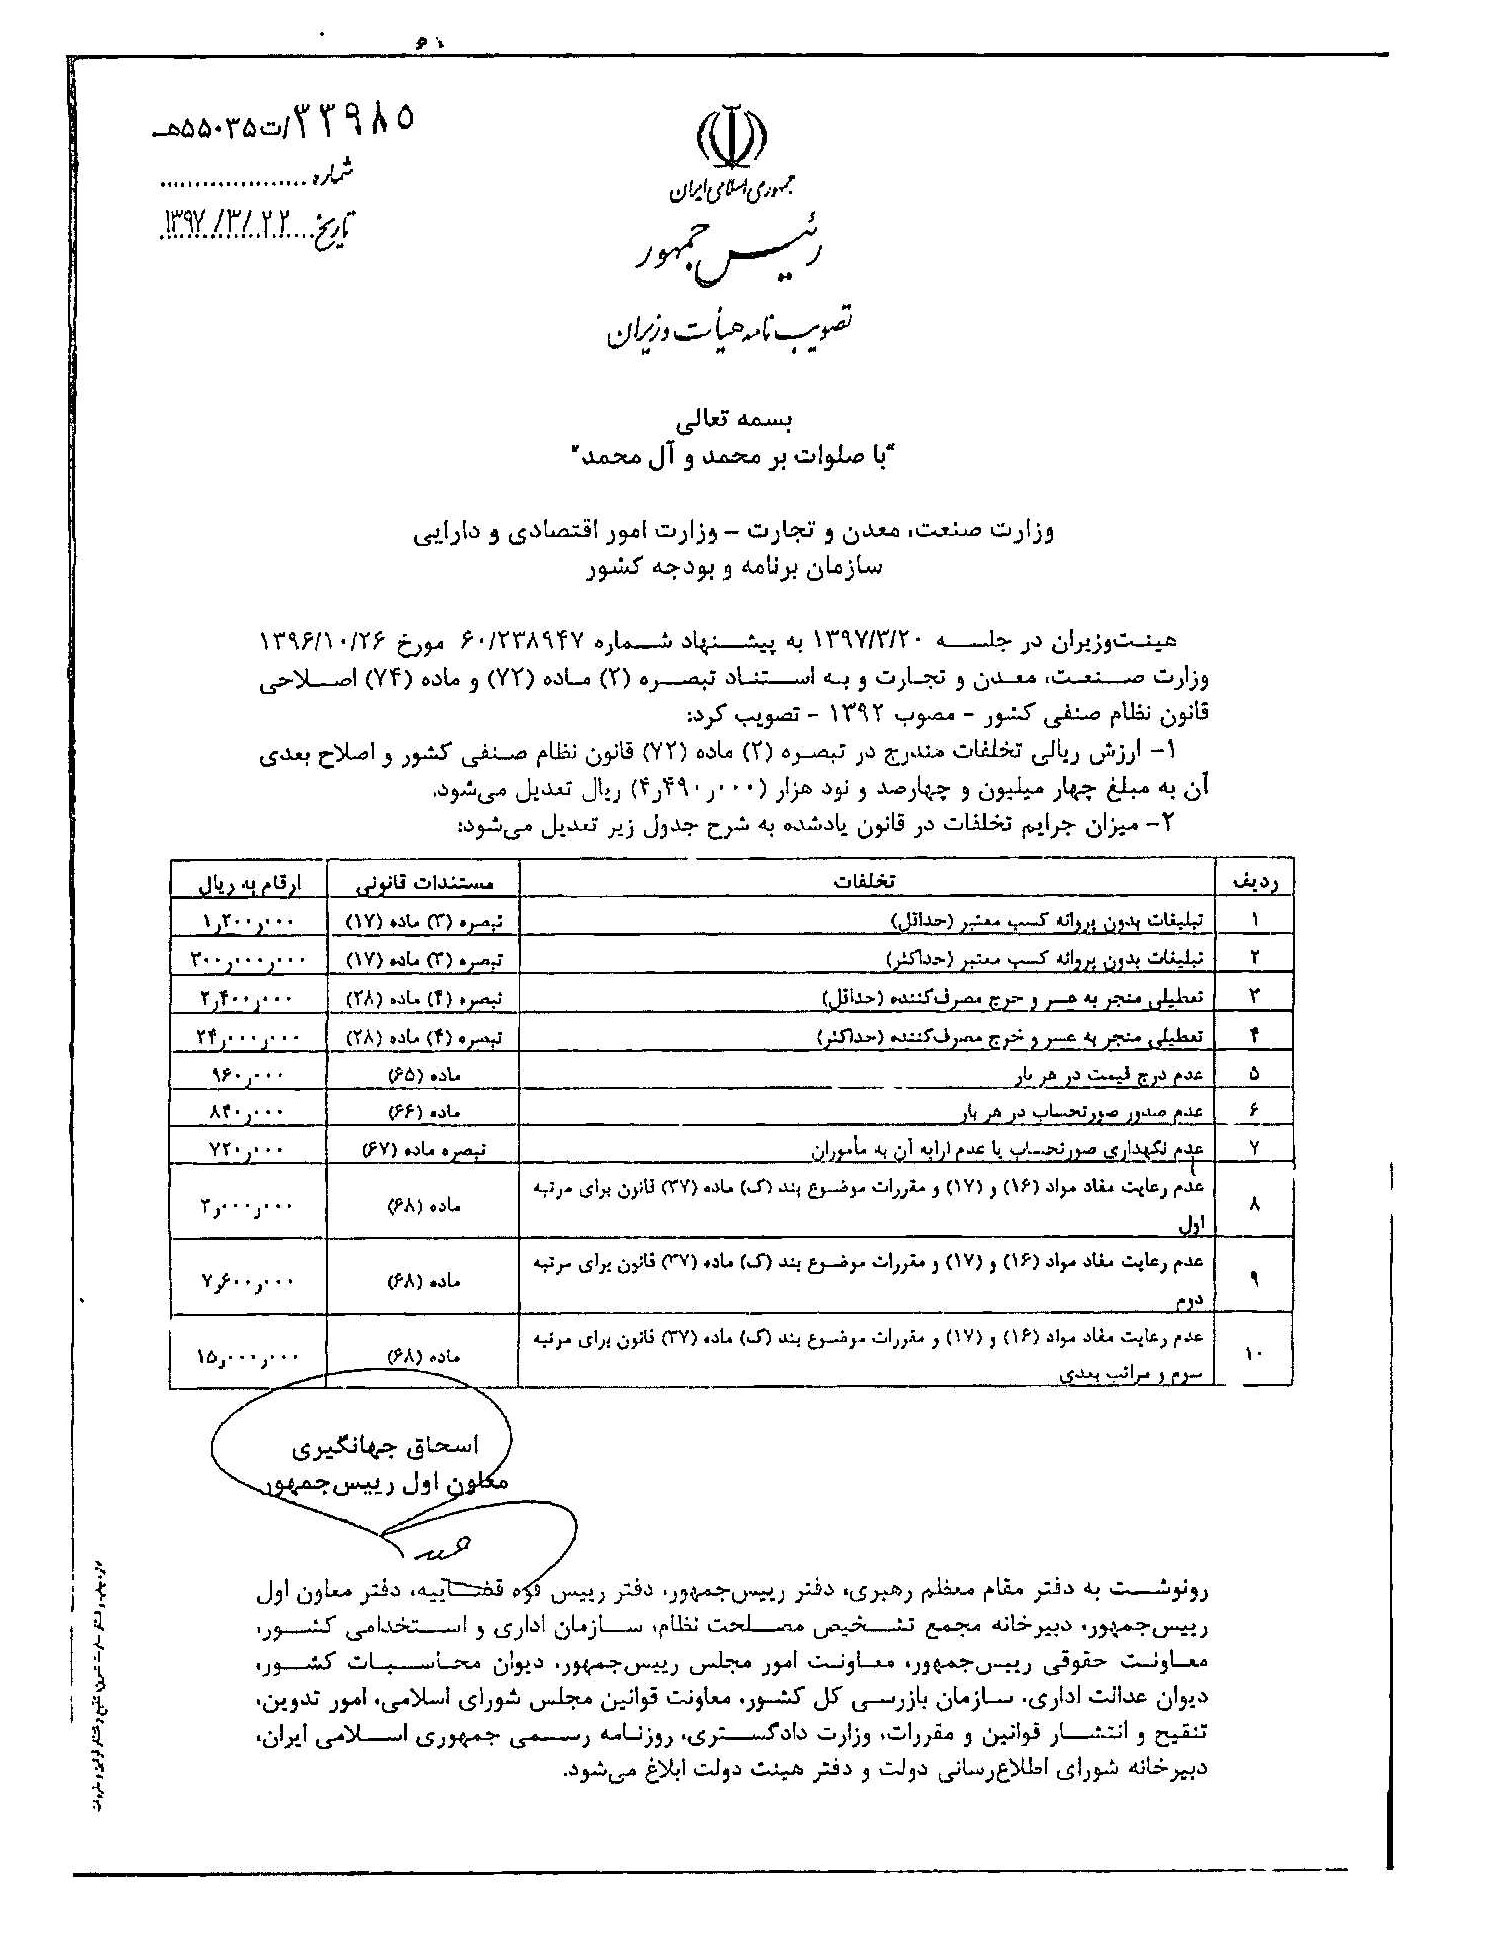 ۳۳۹۸۵/ت۵۵۰۳۵هـ
شماره
تاریخ ۱۳۹۷/۳/۲۲
جمهوری اسلامی ایران
رئیس جمهور
تصویب نامه هیأت وزیران
بسمه تعالی
"با صلوات بر محمد و آل محمد"
وزارت صنعت، معدن و تجارت – وزارت امور اقتصادی و دارایی
سازمان برنامه و بودجه کشور
هیئت‌وزیران در جلسه ۱۳۹۷/۳/۲۰ به پیشنهاد شماره ۶۰/۲۳۸۹۴۷ مورخ ۱۳۹۶/۱۰/۲۶
وزارت صنعت، معدن و تجارت و به استناد تبصره (۲) ماده (۷۲) و ماده (۷۴) اصلاحی
قانون نظام صنفی کشور – مصوب ۱۳۹۲ – تصویب کرد:
۱- ارزش ریالی تخلفات مندرج در تبصره (۲) ماده (۷۲) قانون نظام صنفی کشور و اصلاح بعدی
آن به مبلغ چهار میلیون و چهارصد و نود هزار (۴٫۴۹۰٫۰۰۰) ریال تعدیل می‌شود.
۲- میزان جرایم تخلفات در قانون یادشده به شرح جدول زیر تعدیل می‌شود:
ردیف تخلفات مستندات قانونی ارقام به ریال
۱ تبلیغات بدون پروانه کسب معتبر (حداقل) تبصره (۳) ماده (۱۷) ۱٫۲۰۰٫۰۰۰
۲ تبلیغات بدون پروانه کسب معتبر (حداکثر) تبصره (۳) ماده (۱۷) ۳۰۰٫۰۰۰٫۰۰۰
۳ تعطیلی منجر به عسر و حرج مصرف‌کننده (حداقل) تبصره (۴) ماده (۲۸) ۲٫۴۰۰٫۰۰۰
۴ تعطیلی منجر به عسر و خرج مصرف‌کننده (حداکثر) تبصره (۴) ماده (۲۸) ۲۴٫۰۰۰٫۰۰۰
۵ عدم درج قیمت در هر بار ماده (۶۵) ۹۶۰٫۰۰۰
۶ عدم صدور صورتحساب در هر بار ماده (۶۶) ۸۴۰٫۰۰۰
۷ عدم نگهداری صورتحساب یا عدم ارایه آن به مأموران تبصره ماده (۶۷) ۷۲۰٫۰۰۰
۸ عدم رعایت مفاد مواد (۱۶) و (۱۷) و مقررات موضوع بند (ک) ماده (۳۷) قانون برای مرتبه ماده (۶۸) ۳٫۰۰۰٫۰۰۰
اول
۹ عدم رعایت مفاد مواد (۱۶) و (۱۷) و مقررات موضوع بند (ک) ماده (۳۷) قانون برای مرتبه ماده (۶۸) ۷٫۶۰۰٫۰۰۰
دوم
۱۰ عدم رعایت مفاد مواد (۱۶) و (۱۷) و مقررات موضوع بند (ک) ماده (۳۷) قانون برای مرتبه ماده (۶۸) ۱۵٫۰۰۰٫۰۰۰
سوم و مراتب بعدی
اسحاق جهانگیری
معاون اول رییس‌جمهور
رونوشت به دفتر مقام معظم رهبری، دفتر رییس‌جمهور، دفتر رییس قوه قضاییه، دفتر معاون اول
رییس‌جمهور، دبیرخانه مجمع تشخیص مصلحت نظام، سازمان اداری و استخدامی کشور،
معاونت حقوقی رییس‌جمهور، معاونت امور مجلس رییس‌جمهور، دیوان محاسبات کشور،
دیوان عدالت اداری، سازمان بازرسی کل کشور، معاونت قوانین مجلس شورای اسلامی، امور تدوین،
تنقیح و انتشار قوانین و مقررات، وزارت دادگستری، روزنامه رسمی جمهوری اسلامی ایران،
دبیرخانه شورای اطلاع‌رسانی دولت و دفتر هیئت دولت ابلاغ می‌شود.